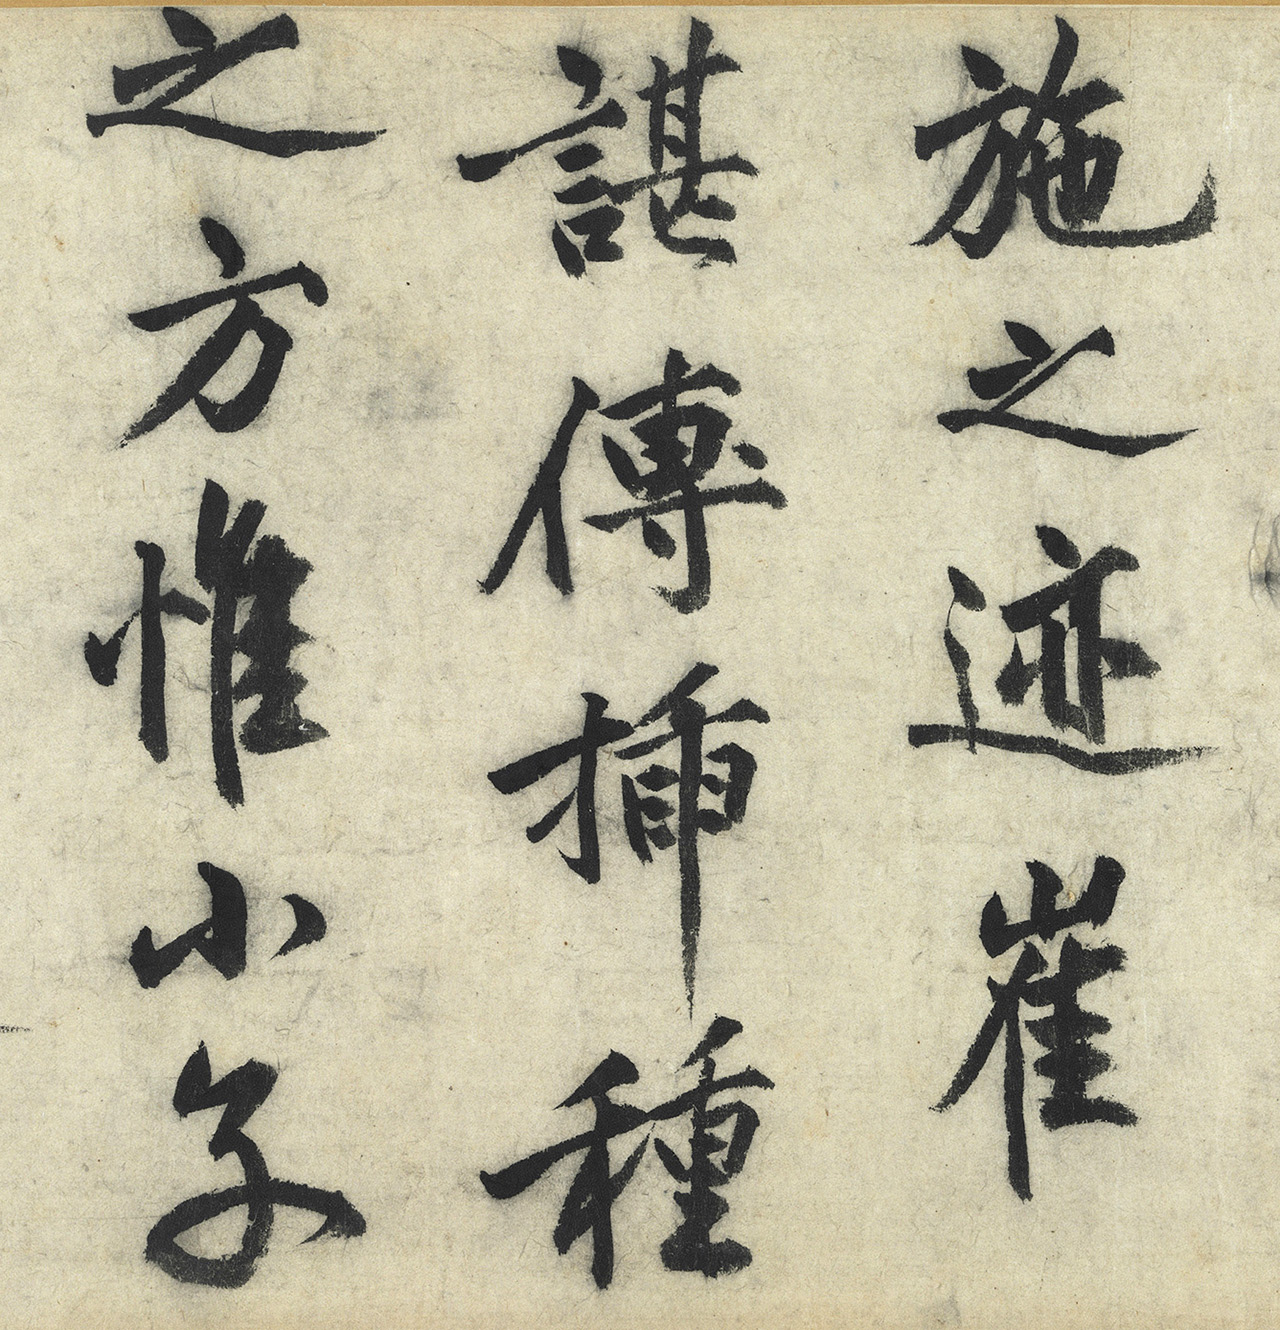 施之迹崔
諶傳揷種
之方惟小子